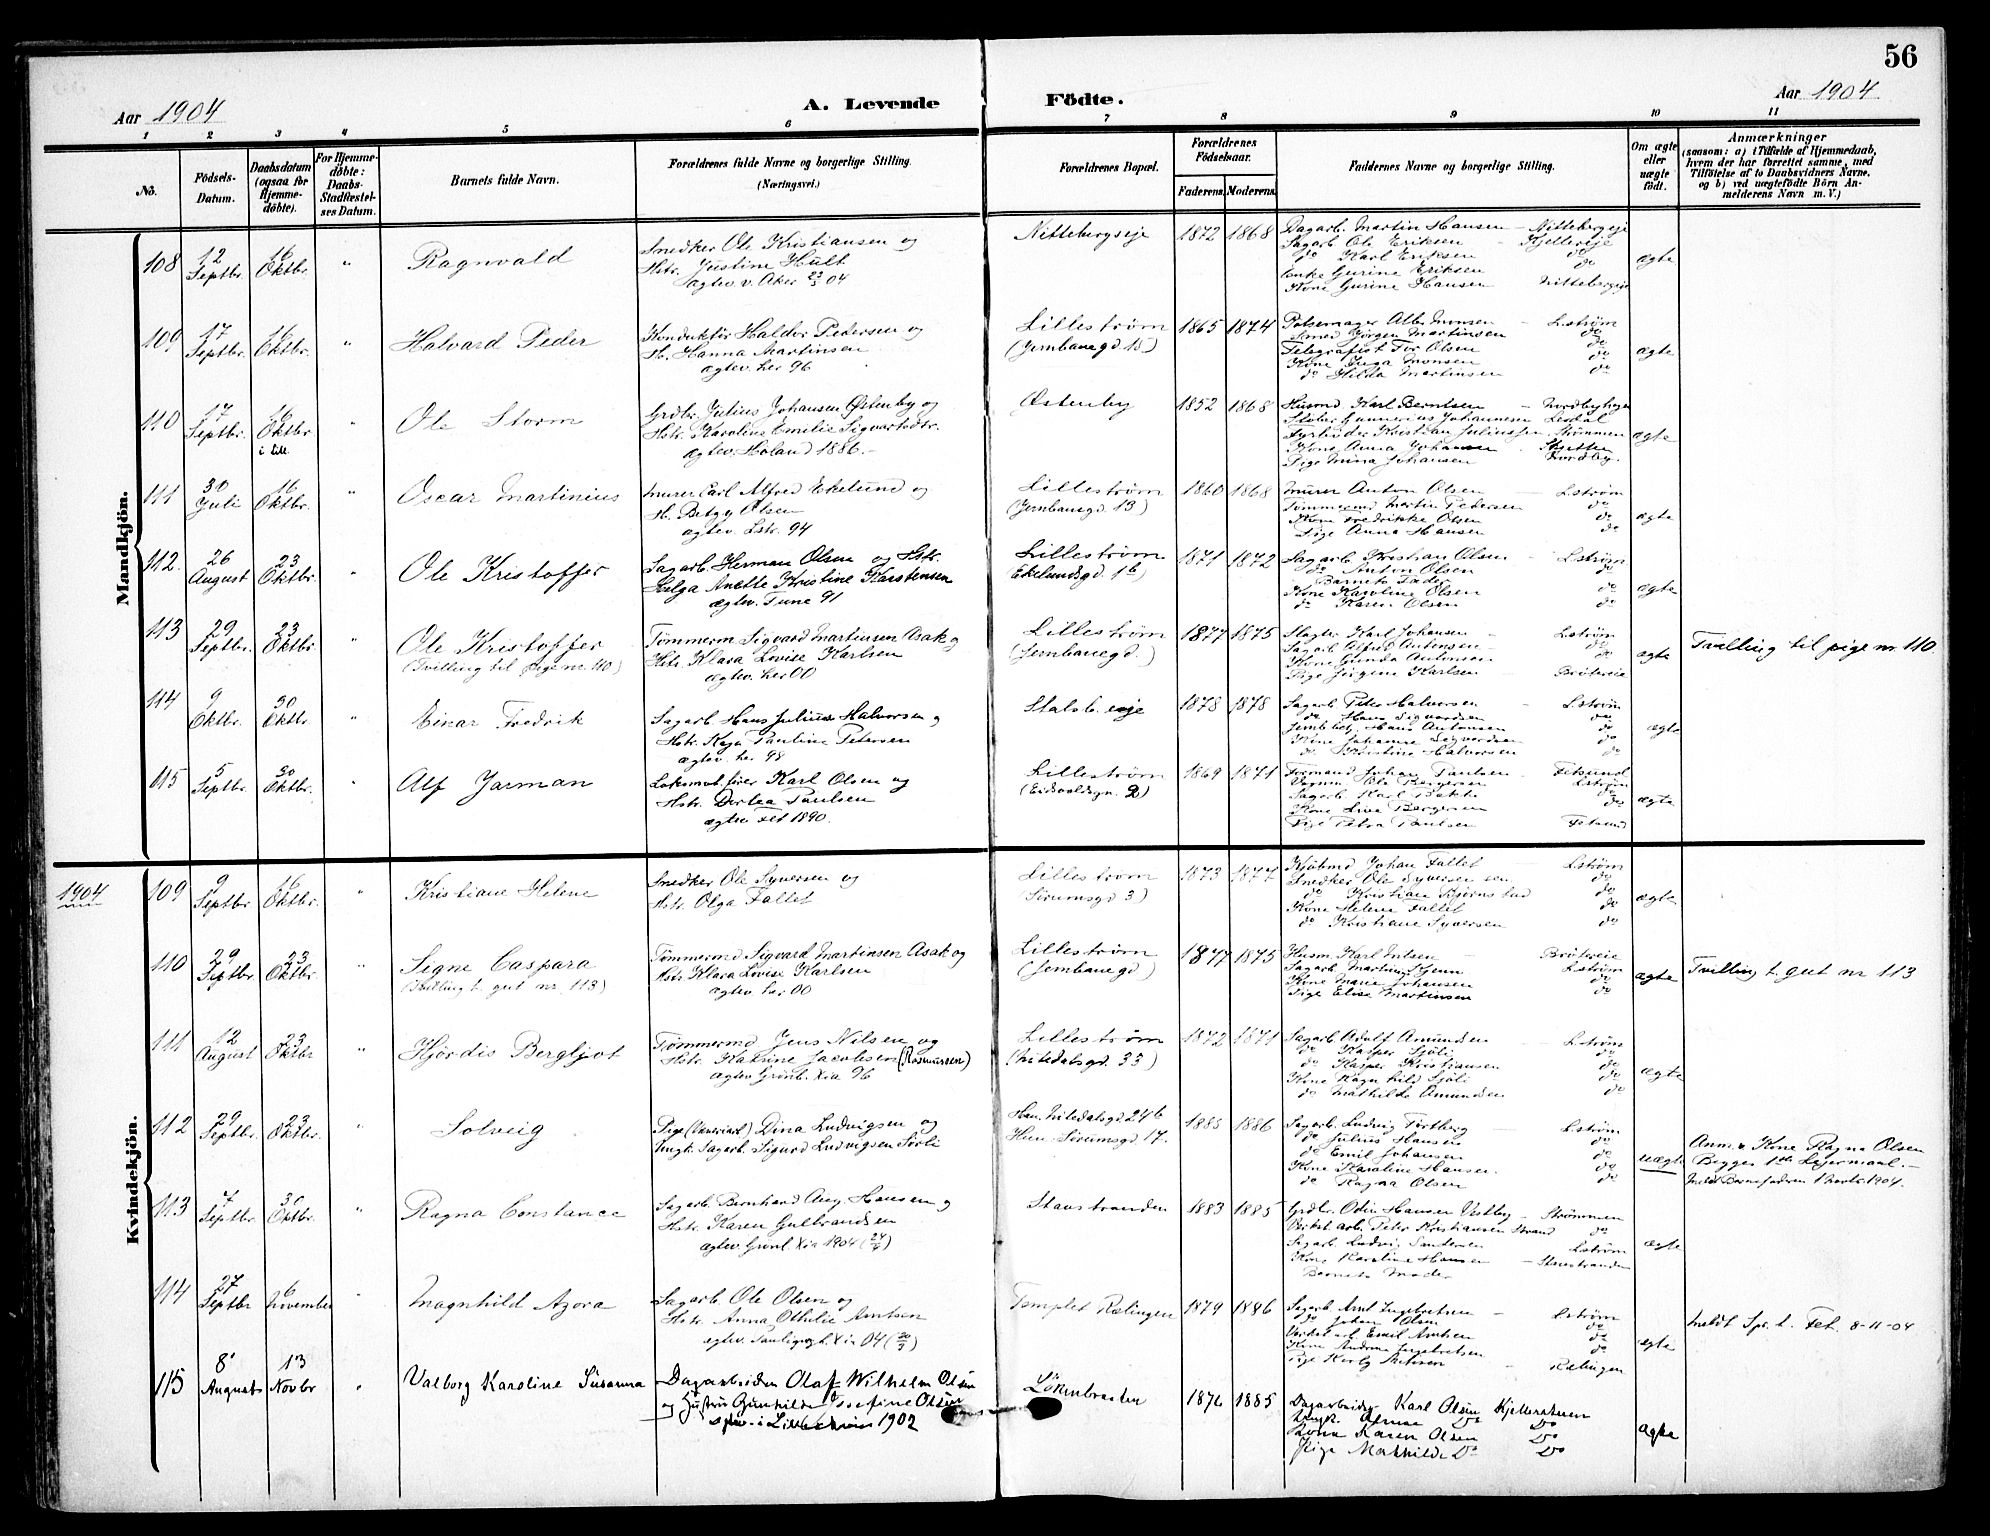 56
Aar 1904
A. Levende
Födte.
Aar 1904
1 2 3 4 5 6 7 8 9 10 11
No.
Födsels-Datum.
Daabsdatum (ogsaa for Hjemmedöbte).
For Hjemmedöbte: Daabs-Stadfæstelses Datum.
Barnets fulde Navn.
Forældrenes fulde Navne og borgerlige Stilling.
(Næringsvei.)
Forældrenes Bopæl.
Forældrenes Födselsaar.
Faderens. Moderens.
Faddernes Navne og borgerlige Stilling.
Om ægte eller uægte födt.
Anmærkninger
(saasom: a) i Tilfælde af Hjemmedaab,
hvem der har forrettet samme, med
Tilföielse af to Daabsvidners Navne,
og b) ved uægtefödte Börn An-
melderens Navn m. V.)
Mandkjön.
108 12 Septbr. 16 Oktbr. " Ragnvald
Snedker Ole Kristiansen og
Hstr. Justine Hult
ægtev. v. Aker 04
Nittebergseje 1872 1868
Dagarb. Martin Hansen – Nittebergeje
Sagarb. Ole Eriksen – Kjellereje
do Karl Eriksen do
Enke Gurine Eriksen
Kone Gurine Hansen Nittebergeje
ægte
109 17 Septbr. 16 Oktbr. " Halvard Peder
Konduktør Haldor Pedersen og
H. Hanna Martinsen
ægtev. her 96
Lillestrøm
(Jernbanegd 15)
1865 1874
Pølsemager Alb. Monsen – Lstrøm
Smed Jörgen Martinsen do
Telegrafist Tor Olsen do
Kone Inga Monsen do
do Hilda Martinsen do
ægte
110 17 Septbr. 16 Oktbr. i Lill. " Ole Storm
Grdbr. Julius Johansen Østenby og
Hstr. Karoline Emilie Sigvartsdtr.
ægtev. Høland 1886.
Østenby 1852 1868
Husmd Karl Berntsen – Nordbyhagen
Johannesen
Fyrbøder Kristian Juliussen Strømmen
Kone Anna Johansen
Pige Mina Johansen Nordby.
ægte
111 30 Juli 16 Oktbr. " Oscar Martinius
Murer Carl Alfred Ekelund og
H. Betzy Olsen
ægtev. Lstr. 94
Lillestrøm
(Jernbangd. 13)
1860 1868
Murer Anton Olsen – Lstrøm
Tømmermd Martin Pedersen do
Kone Fredrikke Olsen do
Pige Anna Hansen do
ægte
112. 26 August 23 Oktbr. " Ole Kristoffer
Sagarb. Herman Olsen og Hstr.
Helga Anette Kristine Karstensen
ægtev. Tune 91
Lillestrøm
Ekelundsgd. 1b)
1871 1872
Sagarb. Kristian Olsen – Lstrøm
do Anton Olsen do
Barnets Fader
Kone Karoline Olsen do
do Karen Olsen do
ægte
113 29 Septbr. 23 Oktbr. " Ole Kristoffer
(Tvilling til pige nr. 110)
Tømmerm Sigvard Martinsen Asak og
Hstr. Klara Lovise Karlsen
ægtev. her 00
Lillestrøm
(Jernbanegd.)
1877 1875
Slagter Karl Johansen – Lstrøm
Sagarb. Alfred Antonsen do
Kone Gunda Antonsen do
Pige Jörgine Karlsen – Bråtereie
ægte
Tvilling til pige nr. 110
114 9 Oktbr. 30 Oktbr. " Einar Fredrik
Sagarb. Hans Julius Halvorsen og
Hstr. Kaja Pauline Petersen
ægtev. her 98
Stalsb. eje 1878 1878
Sagarb. Peter Halvorsen Lstrøm
do Hans Sigvardsen do
Hans Antonsen do
Kone Johanne Sigvardsen do
do Kristine Halvorsen do
ægte
115 5 Septbr. 30 Oktbr. " Alf Jarman
Lokomotivfører Karl Olsen og
Hstr. Dortea Paulsen
ægtev. Fet 1890.
Lillestrøm
(Eidsvoldsgn. 2)
1869 1871
Formand Johan Paulsen – Fetsund
Ole Bergersen Lstrøm
Sagarb. Karl Bakke do
Kone Lina Bergersen do
Pige Petra Paulsen Fetsund
ægte
Kvindekjön.
1904 109 9 Septbr 16 Oktbr. " Kristiane Helene
Snedker Ole Syversen og
Hstr. Olga Fallet
Lillestrøm
Sörumsgd 3)
1873 1877
Kjöbmd Johan Fallet – Lstrøm
Snedker Ole Syversen sen do
do Kristian Bjørnstad do
Kone Helene Fallet do
do Kristiane Syversen do
ægte
110 29 Septbr. 23 Oktbr. " Signe Caspara
(Tvilling t. gut nr. 113)
Tømmermd Sigvard Martinsen Asak og
Hstr. Klara Lovise Karlsen
ægtev. her 00
Lillestrøm
(Jernbanegd)
1877 1875
Husm. Karl Bråtereie
Sagarb. Lstrøm
Kone Marie Johansen do
Pige Elise Martinsen do
ægte
Tvilling t. gut nr 113
111 12 August 23 Oktbr " Hjørdis Bergljot
Tømmermd Jens Nilsen og
Hstr. Katrine Jacobsen (Rasmussen)
ægtev. Grönl. Kia 96
Lillestrøm
(Nitedalsgd. 33)
1872 1871
Sagarb. Adolf Amundsen – Lstrøm
do Kasper Sjöli do
do Kasper Kristiansen do
Kone Ragnhild Sjöli do
do Mathilde Amundsen do
ægte
112 29 Septbr. 23 Oktbr. " Solveig
Pige Dina Ludvigsen og
Ungk. Sagarb. Sigurd Ludvigsen Sörli
Han. Nitedalsgd. 24b
Hun Sörumsgd 17.
1885 1886
Sagarb. Ludvig – Lstrøm
do Julius Hansen do
do Emil Johansen do
Kone Karoline Hansen. do
do Ragna Olsen do
uægte
Anm. v. Kone Ragna Olsen
Begges 1ste Lejermaal.
113 7 Septbr. 30 Oktbr. " Ragna Constance
Sagarb. Bernhard Aug. Hansen og
Hstr. Karen Gulbrandsen
ægtev. Grönl. Kia 1904
Stavstranden 1883 1885
Grdbr. Odin Hansen Vestby – Strømmen
Verkst.arb. Peter Kristiansen Strand do
Sagarb. Ludvig Lstrøm
Kone Karoline Hansen – Stavstranden
Barnets Moder
ægte
114 27 Septbr 6 November " Magnhild Azora
Sagarb. Ole Olsen og
Hstr. Anna Othilie Arntsen
Templet Rælingen 1879 1886
Sagarb. Arnt Ingebretsen – Lstrøm
do Johan Olsen do
Verkst.arb Emil Arntsen do
Kone Andrine Ingebretsen do
Rælingen
ægte
Meldt Spr. t. Fet. 8-11-04
115 8 August 13 Novbr " Valborg Karoline Susanna
Dagarbeider Olaf Wilhelm Olsen
og Hustru Gunhilde Josefine Olsen
i Lillestrøm 1902
1876 1885
Dagarbeider Karl Olsen Kjellereieren
Do Do
Kona Karen Olsen Do
Pige Mathilde Do Do
ægte